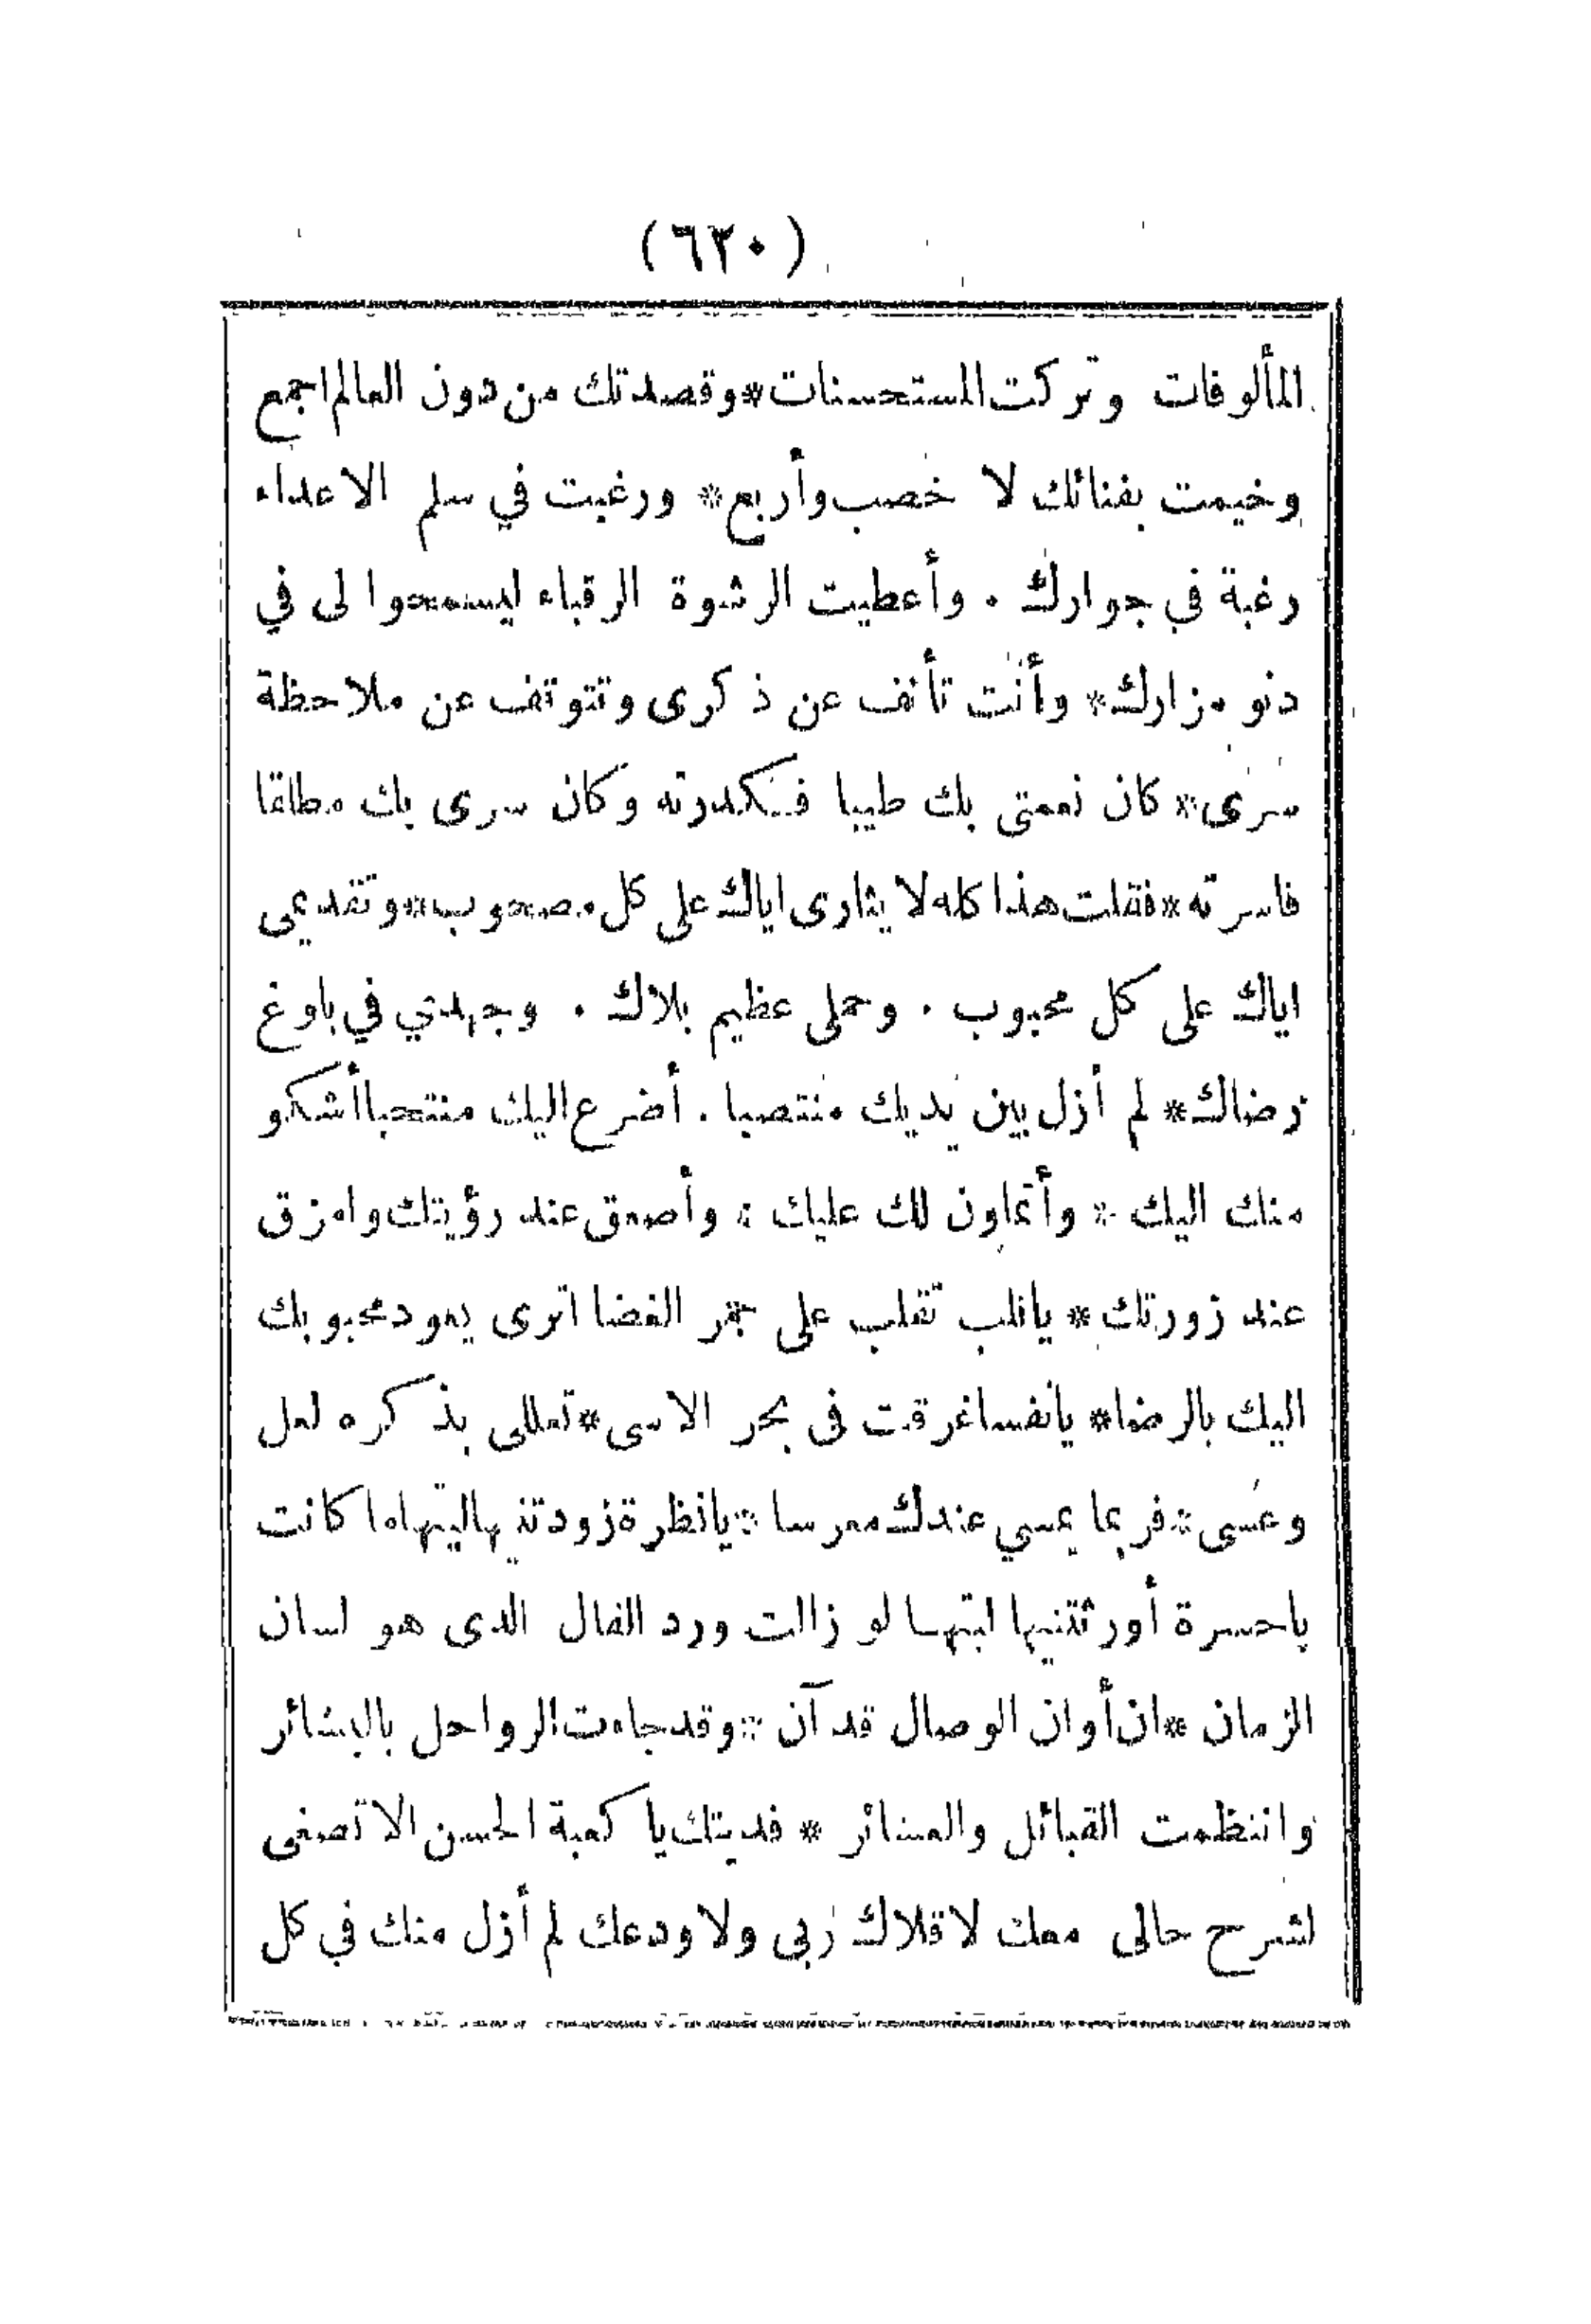 (٦٣٠)
المألوفات وتركت المستحسنات * وقصدتك من دون العالم اجمع
وخيمت بفنائك لا خصب وأربع * ورغبت في سلم الاعداء
رغبة في جوارك . وأعطيت الرشوة الرقباء ليسمحوا لى في
دنو مزارك * وأنت تأنف عن ذكرى وتتوقف عن ملاحظة
سرى * كان نعمتى بك طيبا فتكدرته وكان سرى بك مطلقا
فاسرته * فقلت هذا كله لا يثارى اياك على كل مصحوب * وتقديمى
اياك على كل محبوب . وحملى عظيم بلاك . وجهدي في بلوغ
رضاك * لم أزل بين يديك منتصبا . أضرع اليك منتحبا أشكو
منك اليك * وأتعاون لك عليك * وأصعق عند رؤيتك وامزق
عند زورتك * ياقلب تقلب على جمر الغضا اترى يعود محبوبك
اليك بالرضا * يانفسا غرقت فى بحر الاسى * تعللى بذكره لعل
وعسى * فربما يمسي عندك معرسا * يانظرة زودتنيها ليتها ما كانت
ياحسرة أورثتنيها ليتها لو زالت ورد الفال الذى هو لسان
الزمان * ان أوان الوصال قد آن * وقد جاءت الرواحل بالبشائر
وانتظمت القبائل والعشائر * فديتك يا كعبة الحسن الا تصغى
لشرح حالى معك لا قلاك ربى ولا ودعك لم أزل منك في كل